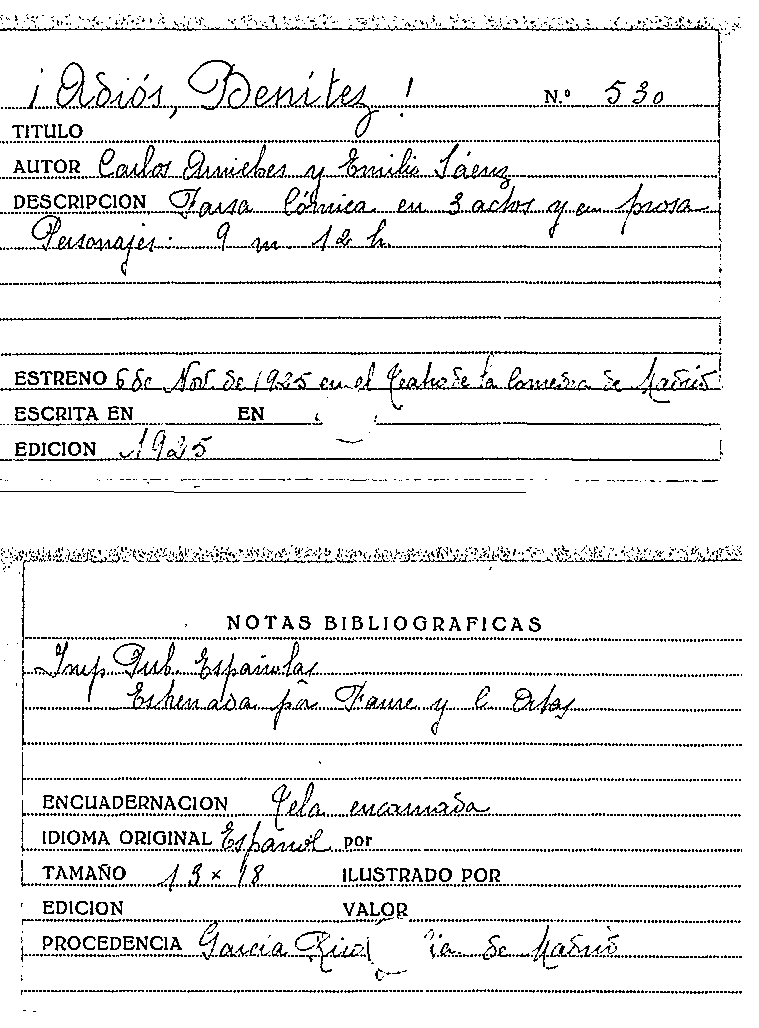 ¡Adiós, Benítez!
N.º 530
TITULO
AUTOR Carlos Arniches y Emilio Sáenz
DESCRIPCION Farsa Cómica en 3 actos y en prosa
Personajes: 9 m. 12 h.
ESTRENO 6 de Nov. de 1925 en el Teatro de la Comedia de Madrid
ESCRITA EN EN
EDICION 1925
NOTAS BIBLIOGRAFICAS
Imp. Pub. Españolas
Estrenada por Faure y C. Ortas
ENCUADERNACION Tela encarnada
IDIOMA ORIGINAL Español por
TAMAÑO 13 x 18 ILUSTRADO POR
EDICION VALOR
PROCEDENCIA García Rico de Madrid